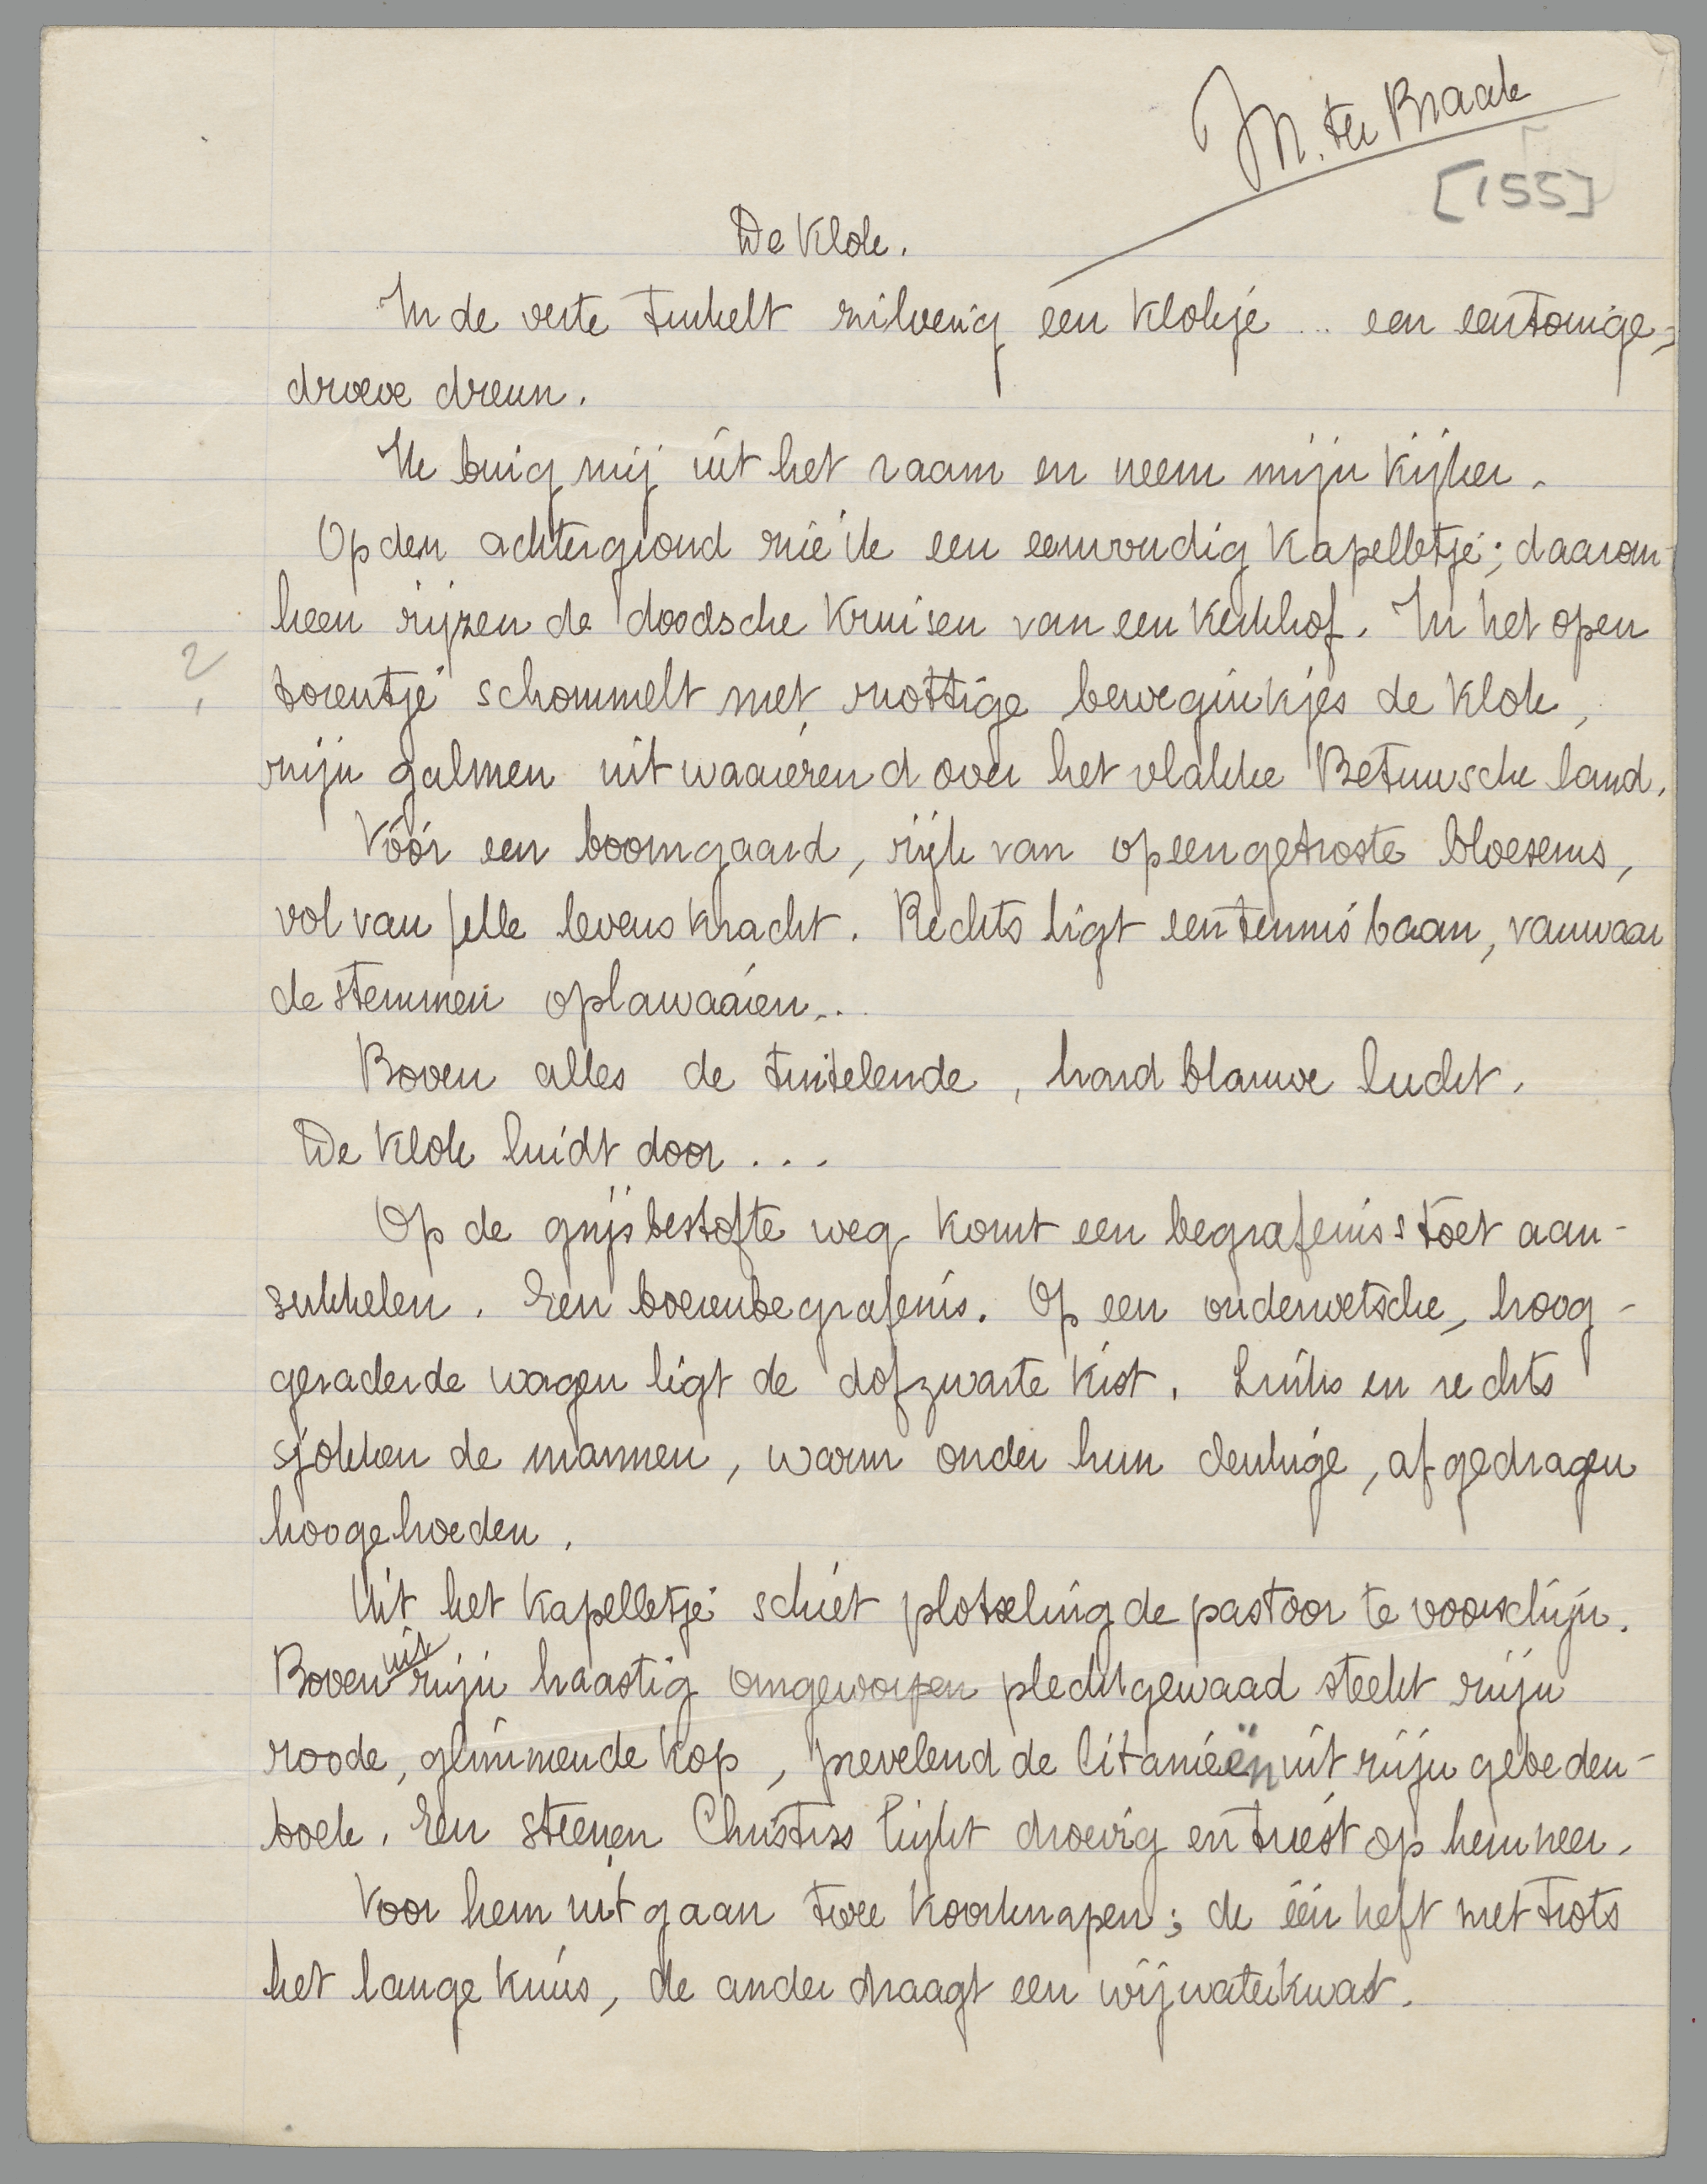 M. ter Braak
[155]
De Klok.
In de verte tinkelt zilverig een klokje ... een eentonige,
droeve dreun.
Ik buig mij uit het raam en neem mijn kijker.
Op den achtergrond zie ik een eenvoudig kapelletje; daarom-
heen rijzen de doodsche kruisen van een kerkhof. In het open
?
torentje schommelt met mottige beweginkjes de klok,
zijn galmen uitwaaierend over het vlakke Betuwsche land.
Vóór een boomgaard, rijk van opeengetroste bloesems,
vol van felle levenskracht. Rechts ligt een tennisbaan, vanwaar
de stemmen oplawaaien...
Boven alles de tintelende, hard blauwe lucht.
De Klok luidt door...
Op de grijsbestofte weg komt een begrafenisstoet aan-
sukkelen. Een boerenbegrafenis. Op een ouderwetsche, hoog-
geraderde wagen ligt de dofzwarte kist. Links en rechts
sjokken de mannen, warm onder hun deukige, afgedragen
hoogehoeden.
Uit het kapelletje schiet plotseling de pastoor te voorschijn.
Boven uit zijn haastig omgeworpen plechtgewaad steekt zijn
roode, glimmende kop, prevelend de litanieën uit zijn gebeden-
boek. Een steenen Christus lijkt droevig en triest op hem neer.
Voor hem uit gaan twee koorknapen; de één heft met trots
het lange kruis, de ander draagt een wijwaterkwast.